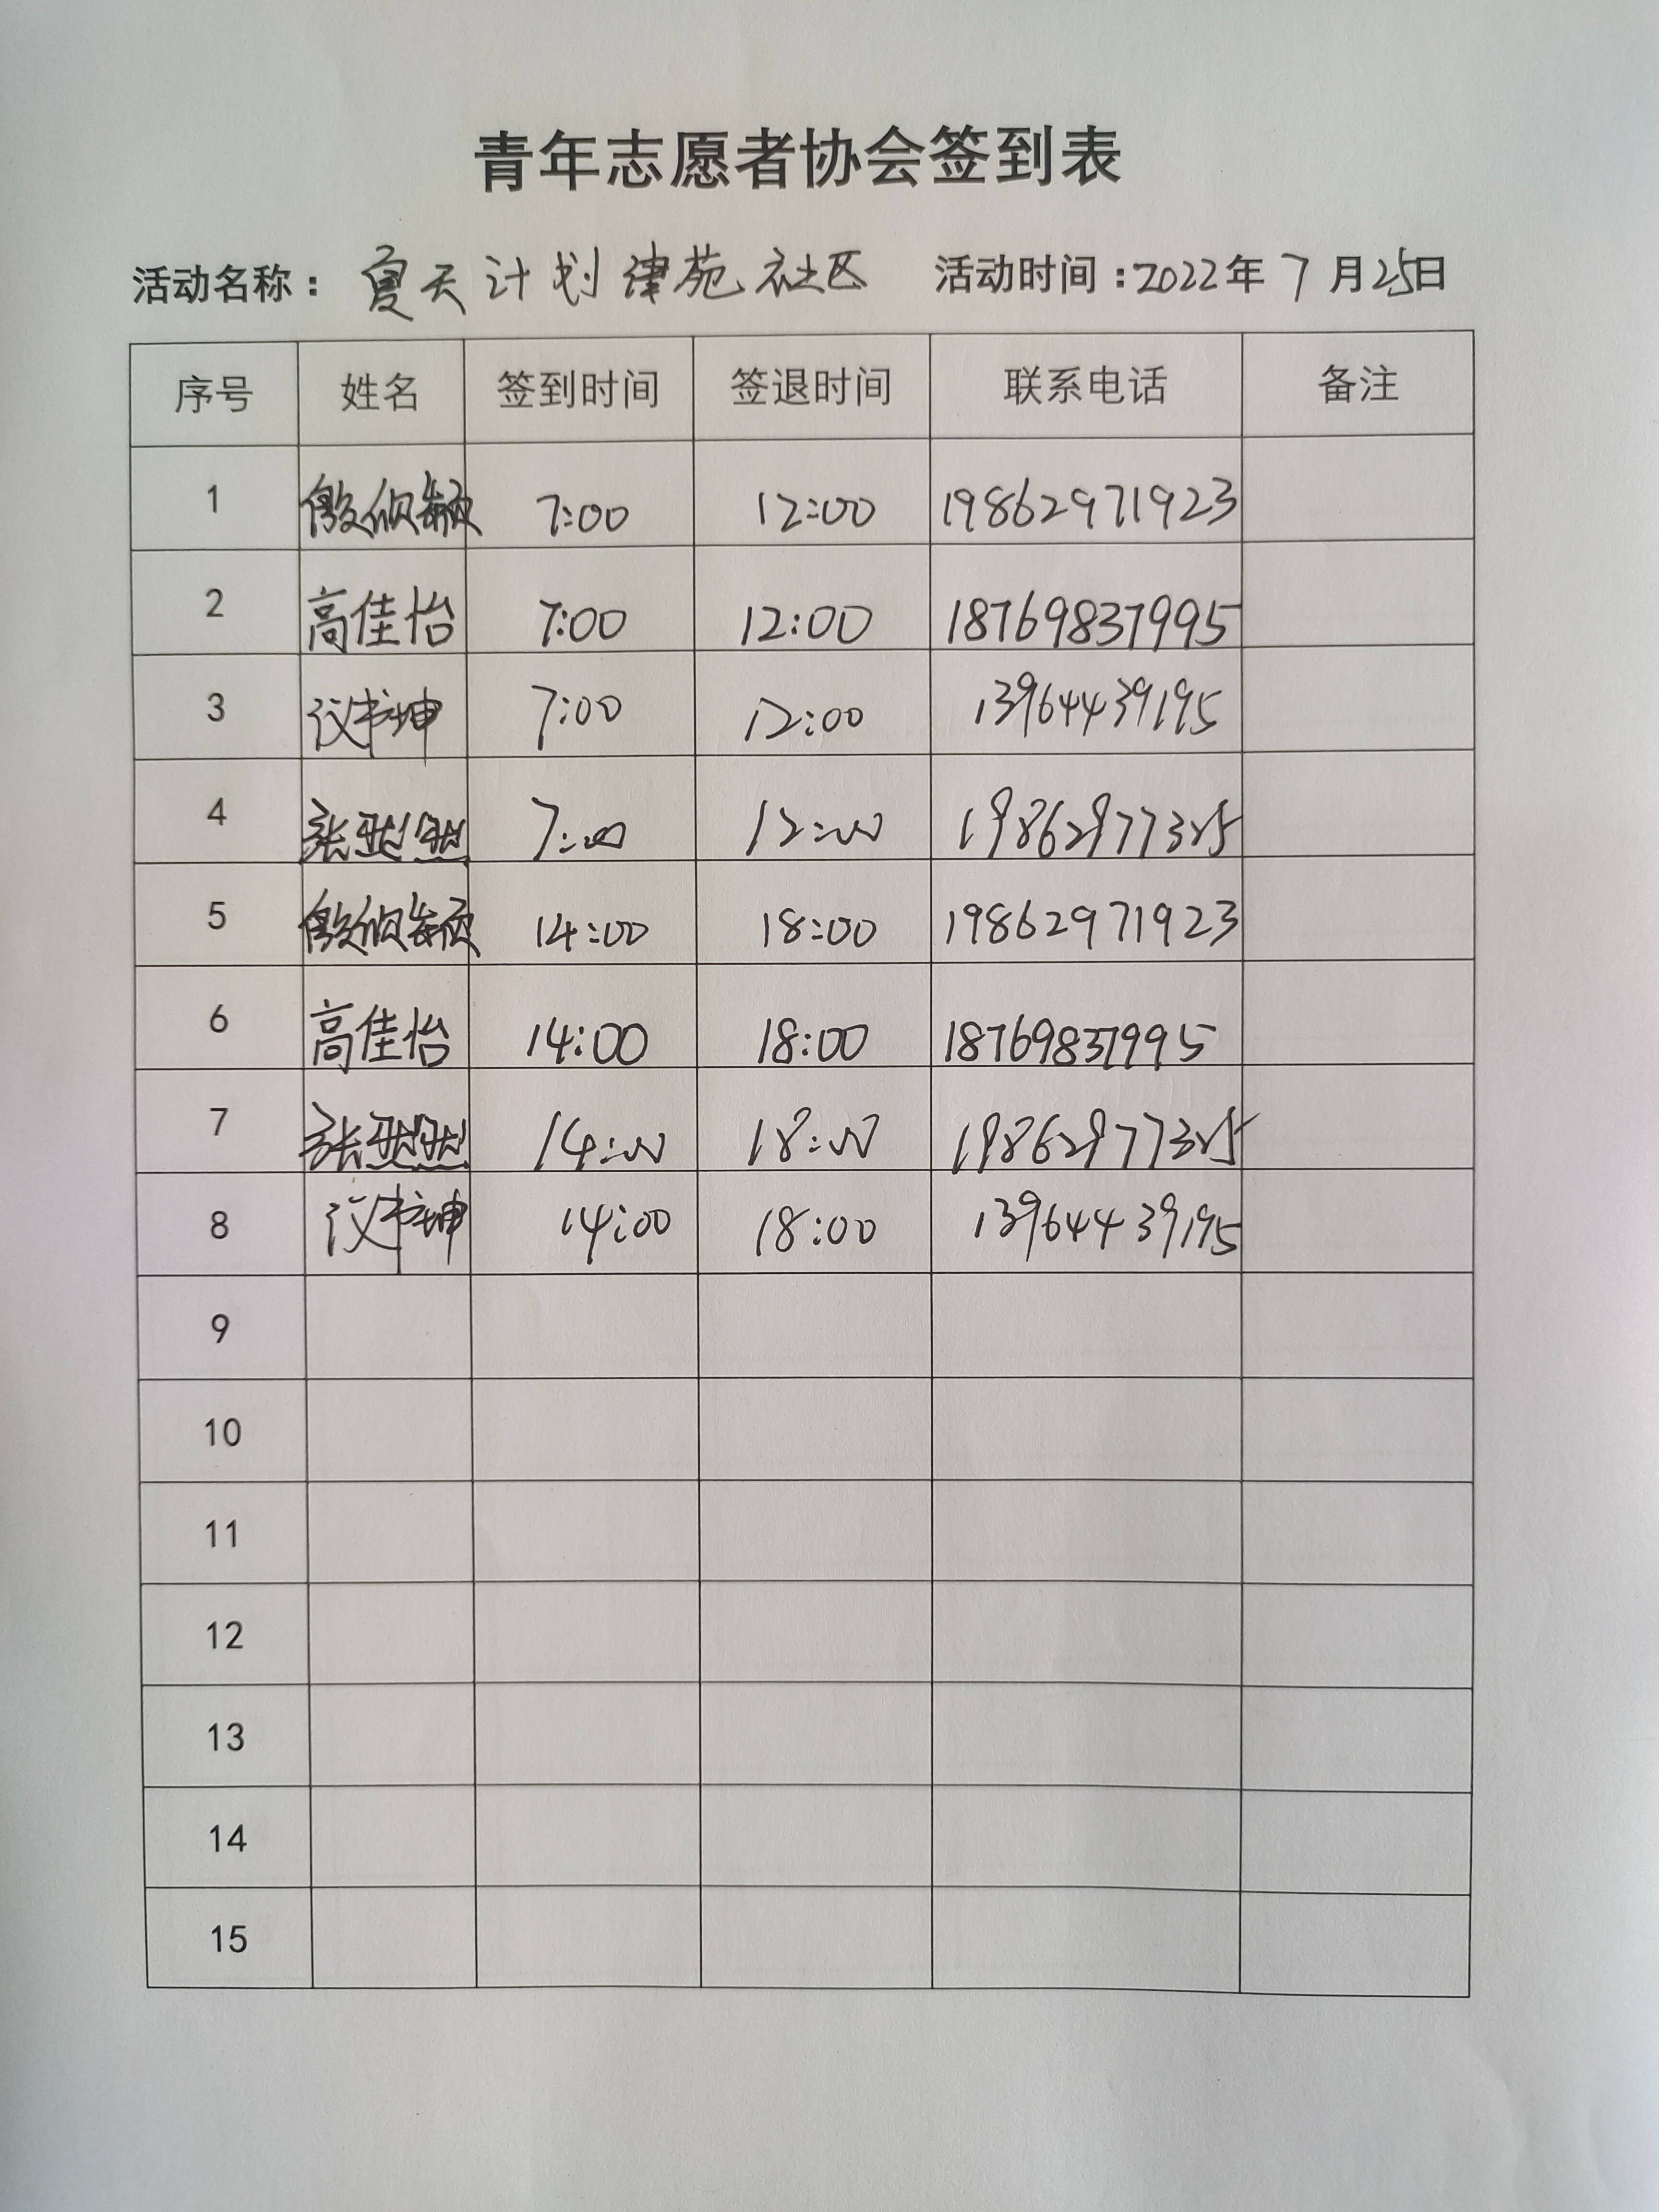 青年志愿者协会签到表
活动名称： 夏天计划律苑社区 活动时间：2022年7月25日
序号 姓名 签到时间 签退时间 联系电话 备注
1 7:00 12:00 19862971923
2 高佳怡 7:00 12:00 18769837995
3 议书坤 7:00 12:00 13964439195
4 张 7:00 12:00 19862977325
5 14:00 18:00 19862971923
6 高佳怡 14:00 18:00 18769837995
7 张 14:00 18:00 19862977325
8 议书坤 14:00 18:00 13964439195
9
10
11
12
13
14
15